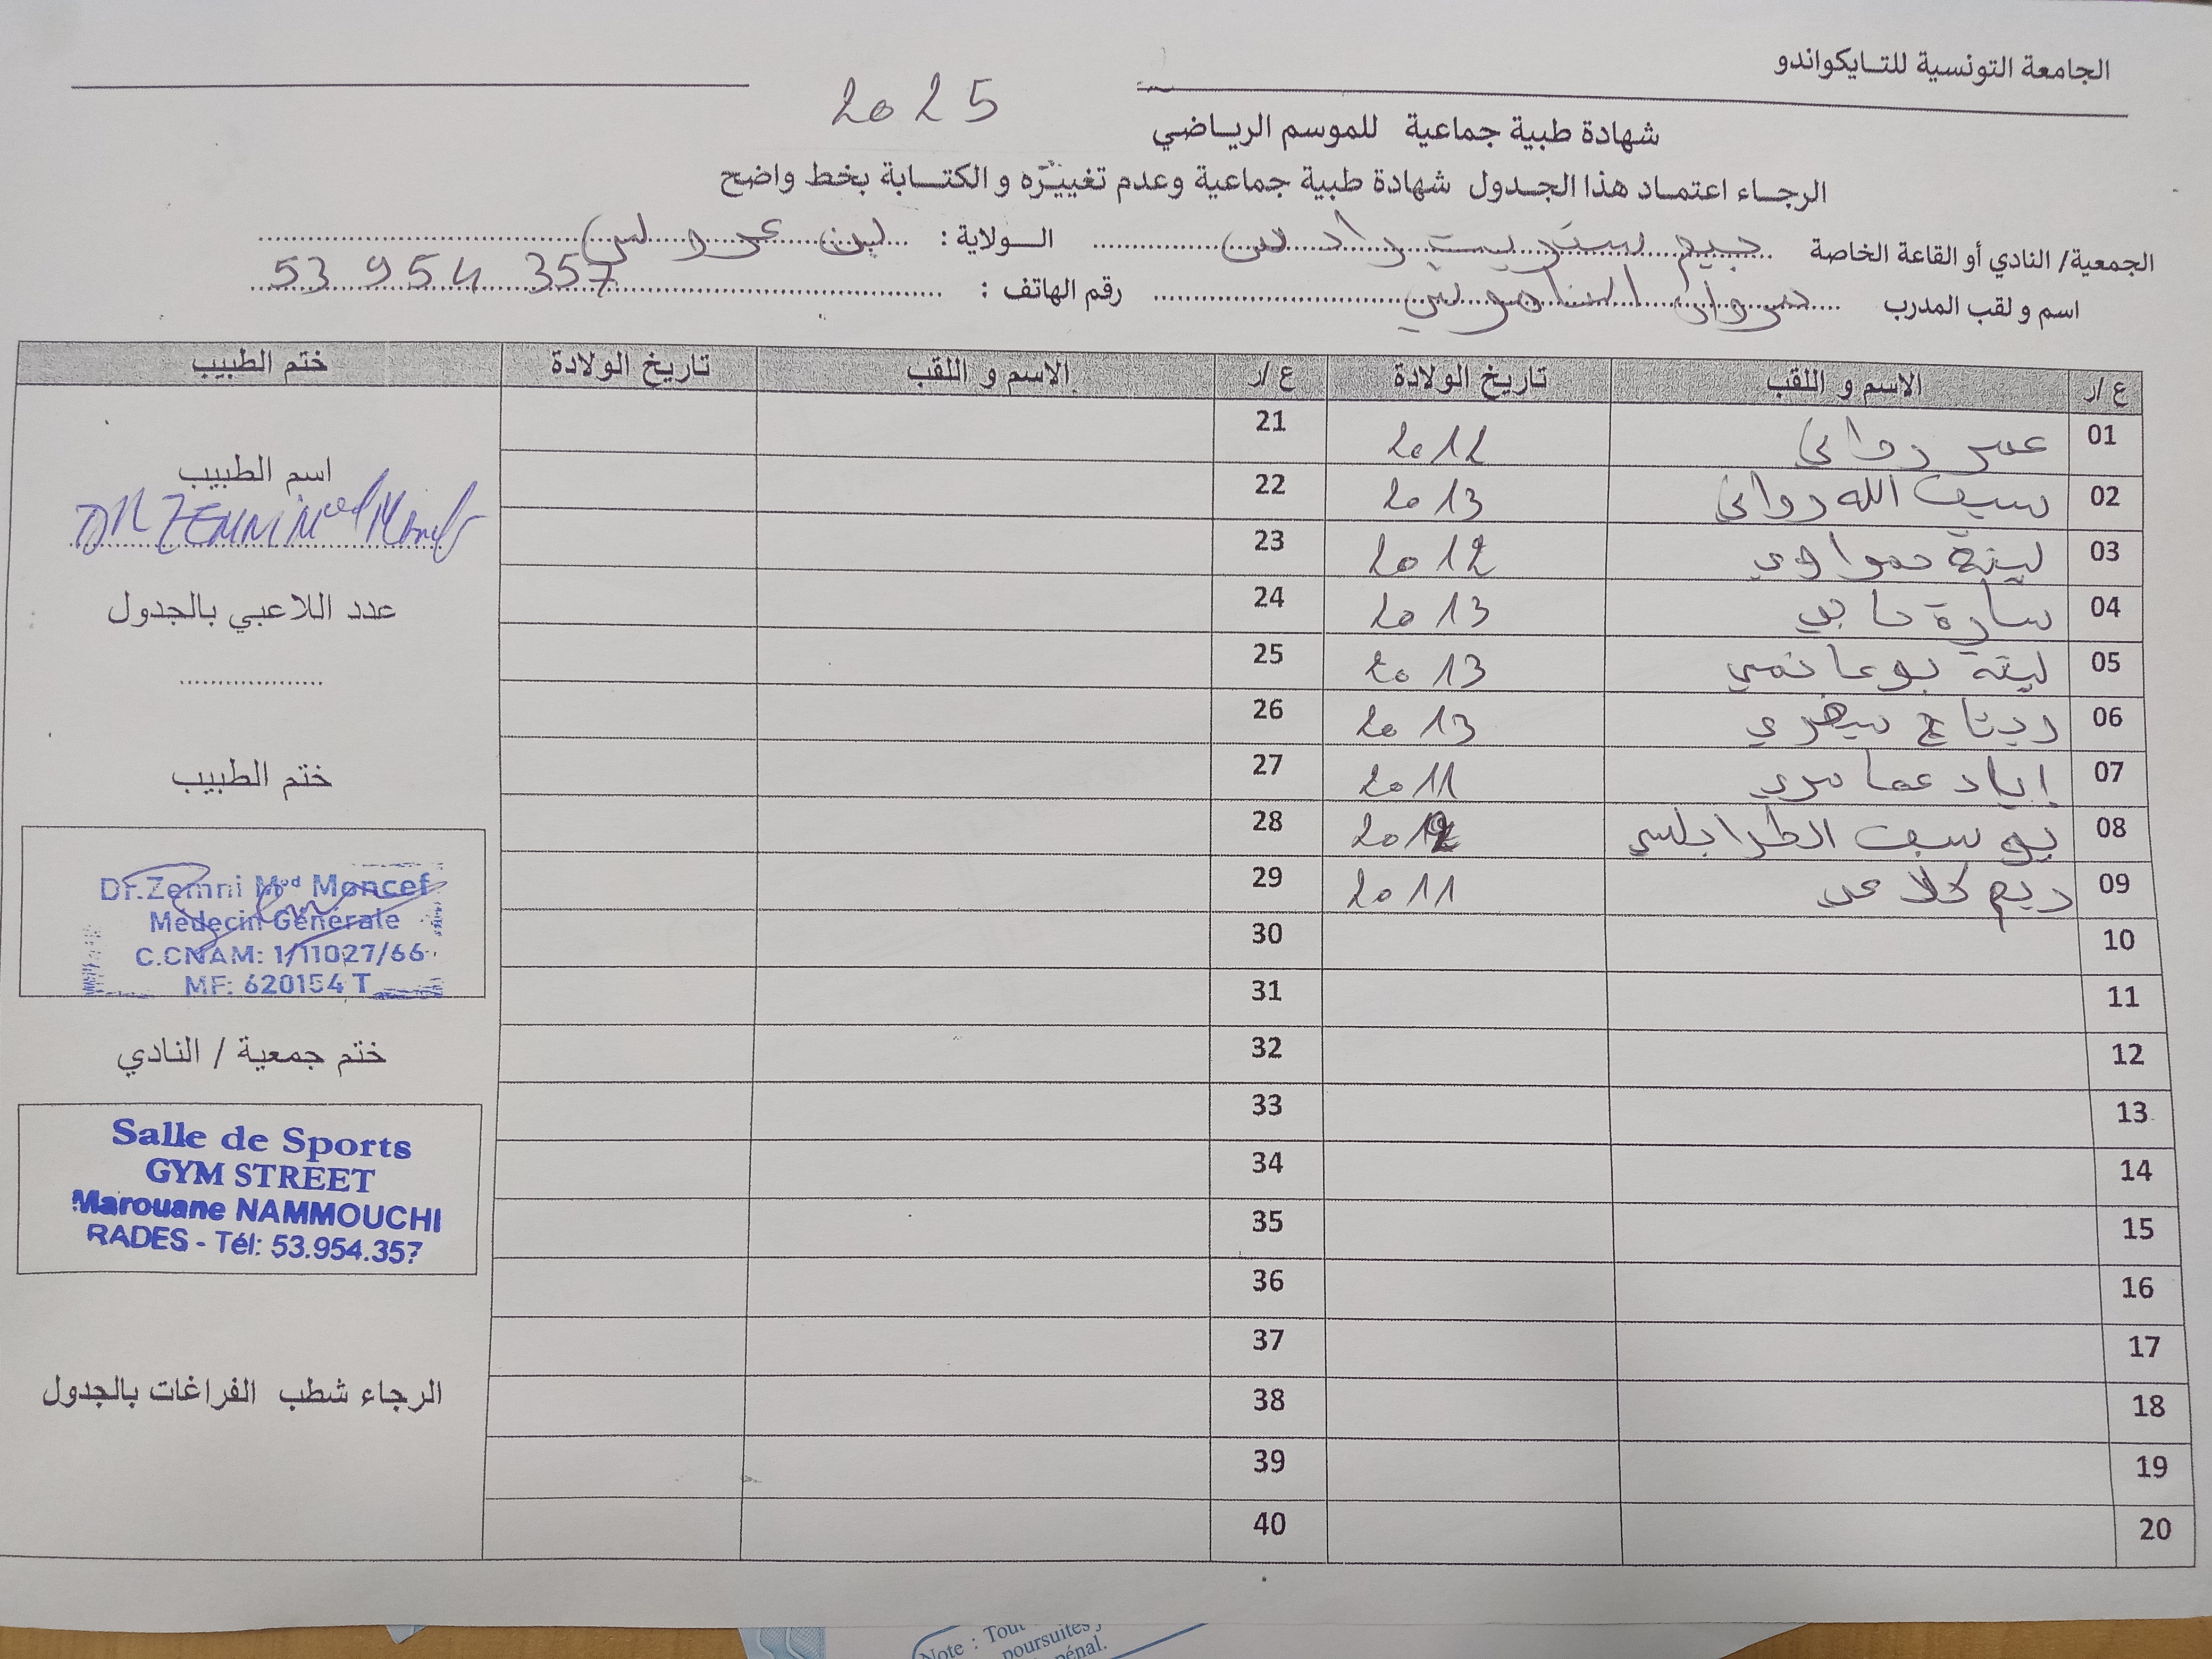 الجامعة التونسية للتـايكواندو
شهادة طبية جماعية للموسم الرياضي 2025
الرجاء اعتماد هذا الجدول شهادة طبية جماعية وعدم تغييره و الكتابة بخط واضح
الجمعية/ النادي أو القاعة الخاصة جيم ستريت رادس الـولاية : بن عروس
اسم و لقب المدرب مروان الناموشي رقم الهاتف : 53 954 357
ع /ر الاسم و اللقب تاريخ الولادة ع /ر الاسم و اللقب تاريخ الولادة ختم الطبيب
01 عمر رواني 2012 21
02 سيف الله رواني 2013 22
03 لينة حمواوي 2012 23
04 سارة حاجي 2013 24
05 لينة بوغانمي 2013 25
06 ريتاج 2013 26
07 إياد عمامري 2011 27
08 يوسف الطرابلسي 28
09 ريم كلاعي 2011 29
10 30
11 31
12 32
13 33
14 34
15 35
16 36
17 37
18 38
19 39
20 40
اسم الطبيب
DR ZEMNI Med Moncef
عدد اللاعبي بالجدول
ختم الطبيب
Dr.Zemni Med Moncef
Médecin Générale
C.CNAM: 1/11027/66
MF: 620154 T
ختم جمعية / النادي
Salle de Sports
GYM STREET
Marouane NAMMOUCHI
RADES - Tél: 53.954.357
الرجاء شطب الفراغات بالجدول
Note : Tout
poursuites
pénal.